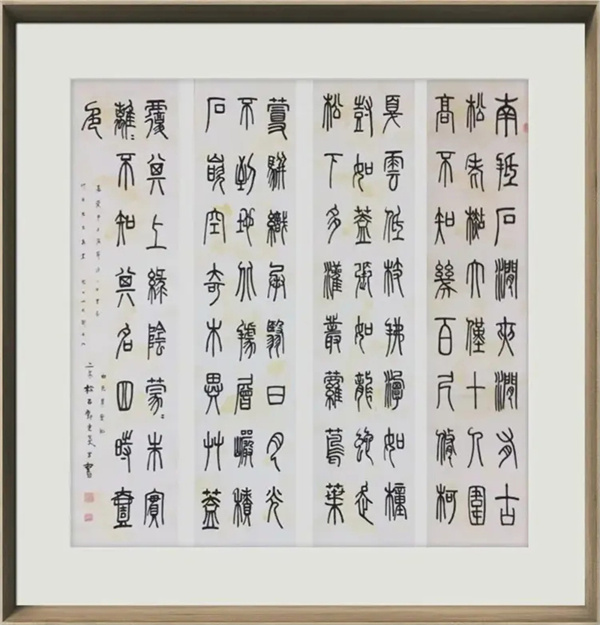 南抵石澗夾澗有古
松老杉大僅十人圍
高不知幾百尺修柯
戛雲低枝拂潭如幢
豎如蓋張如龍蛇走
松下多灌叢蘿蔦葉
蔓駢織承翳日月光
不到地北據層巖積
石嵌空奇木異艸蓋
覆其上綠陰蒙〻朱實
離〻不知其名四時壹
色